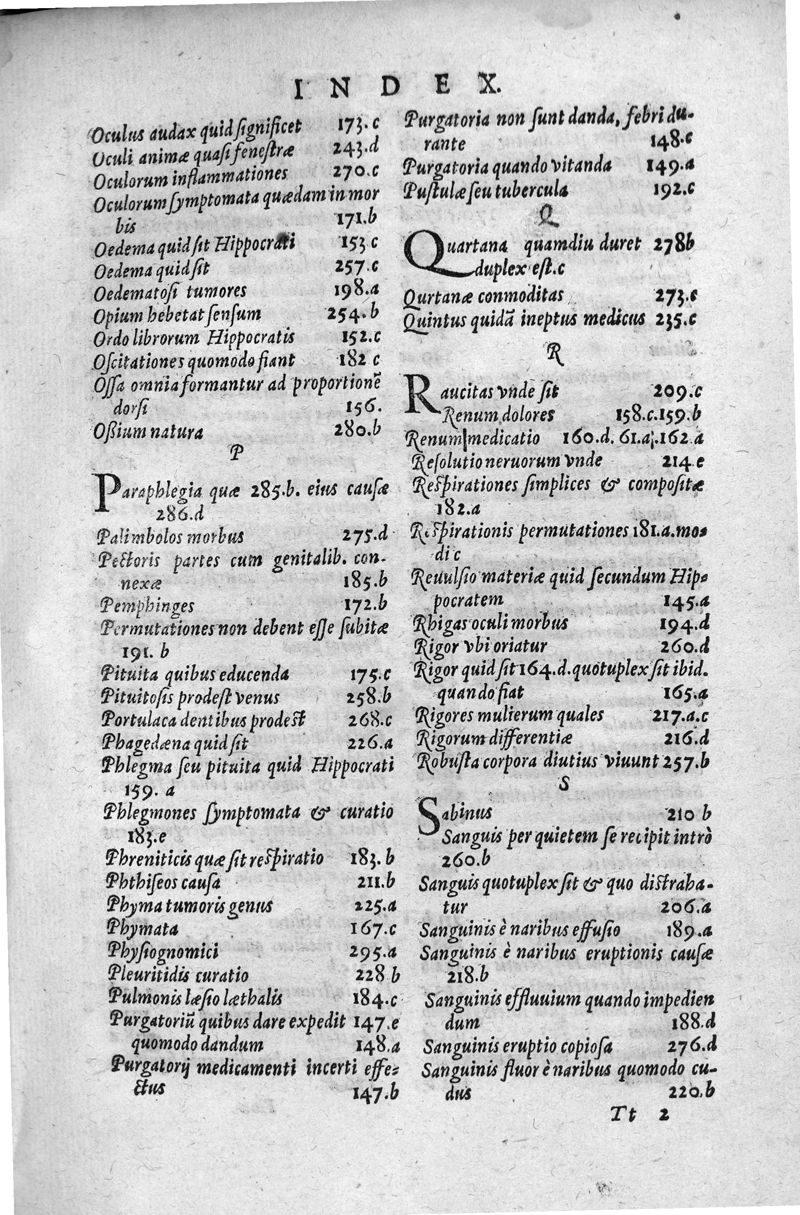 INDEX.
Oculus audax quid ſignificet 173.c
Oculi animæ quaſi feneſtræ 243.d
Oculorum inflammationes 270.c
Oculorum ſymptomata quædam in mor
bis 171.b
Oedema quid ſit Hippocrati 153 c
Oedema quid ſit 257.c
Oedematoſi tumores 198.a
Opium hebetat ſenſum 254.b
Ordo librorum Hippocratis 152.c
Oſcitationes quomodo fiant 182 c
Oſſa omnia formantur ad proportionē
dorſi 156.
Oßium natura 280.b
P
Paraphlegia quæ 285.b. eius cauſæ
286.d
Palimbolos morbus 275.d
Pectoris partes cum genitalib. con-
nexæ 185.b
Pemphinges 172.b
Permutationes non debent eſſe ſubitæ
191. b
Pituita quibus educenda 175.c
Pituitoſis prodeſt venus 258.b
Portulaca dentibus prodest 268.c
Phagedæna quid ſit 226.a
Phlegma ſeu pituita quid Hippocrati
159. a
Phlegmones ſymptomata & curatio
183.e
Phreniticis quæ ſit reſpiratio 183. b
Phthiſeos cauſa 211.b
Phyma tumoris genus 225.a
Phymata 167.c
Phyſiognomici 295.a
Pleuritidis curatio 228 b
Pulmonis læſio læthalis 184.c
Purgatoriū quibus dare expedit 147.e
quomodo dandum 148.a
Purgatorij medicamenti incerti effe-
ctus 147.b
Purgatoria non ſunt danda, febri du-
rante 148.c
Purgatoria quando vitanda 149.a
Puſtulæ ſeu tubercula 192.c
Q
Quartana quamdiu duret 278b
duplex eſt.c
Qurtanæ conmoditas 273.e
Quintus quidā ineptus medicus 235.c
R
Raucitas vnde ſit 209.c
Renum dolores 158.c.159.b
Renum medicatio 160.d. 61.a.162 a
Reſolutio neruorum vnde 214.e
Reſpirationes ſimplices & compoſitæ
182.a
Reſpirationis permutationes 181.a.mo-
di c
Reuulſio materiæ quid ſecundum Hip-
pocratem 145.a
Rhigas oculi morbus 194.d
Rigor vbi oriatur 260.d
Rigor quid ſit 164.d.quotuplex ſit ibid.
quando fiat 165.a
Rigores mulierum quales 217.a.c
Rigorum differentiæ 216.d
Robuſta corpora diutius viuunt 257.b
S
Sabinus 210 b
Sanguis per quietem ſe recipit intrò
260.b
Sanguis quotuplex ſit & quo diſtraha-
tur 206.a
Sanguinis è naribus effuſio 189.a
Sanguinis è naribus eruptionis cauſæ
218.b
Sanguinis effluuium quando impedien
dum 188.d
Sanguinis eruptio copioſa 276.d
Sanguinis fluor è naribus quomodo cu-
dus 220.b
Tt 2